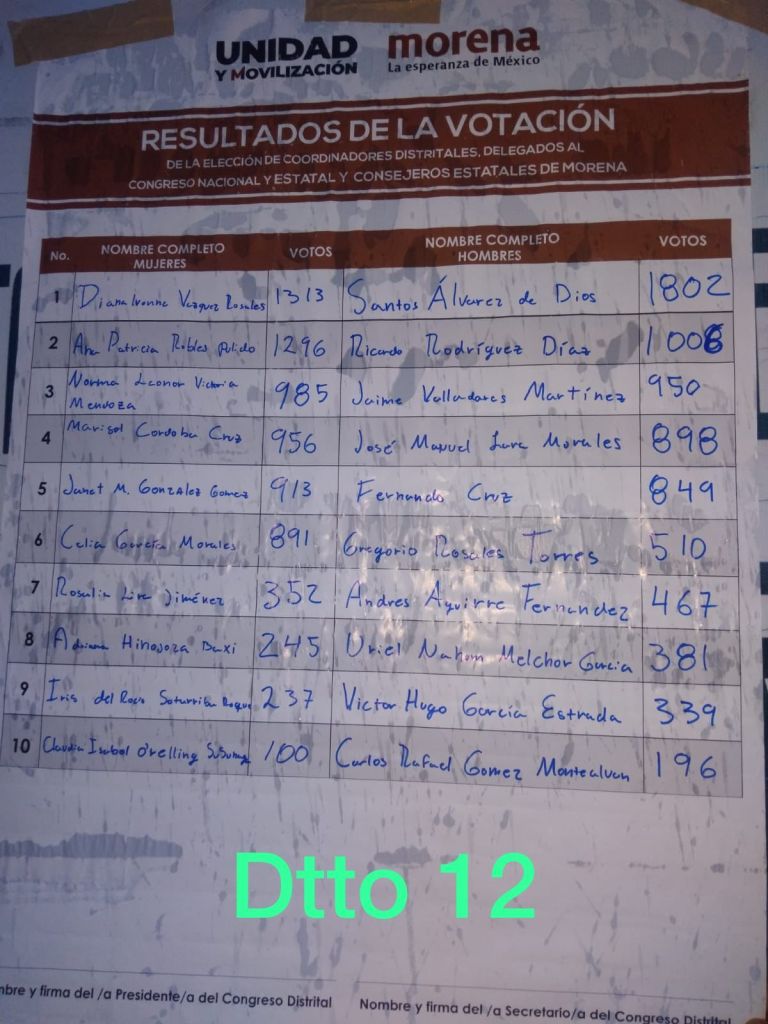 UNIDAD
Y MOVILIZACIÓN
morena
La esperanza de México
RESULTADOS DE LA VOTACIÓN
DE LA ELECCIÓN DE COORDINADORES DISTRITALES, DELEGADOS AL
CONGRESO NACIONAL Y ESTATAL Y CONSEJEROS ESTATALES DE MORENA
No. NOMBRE COMPLETO MUJERES VOTOS NOMBRE COMPLETO HOMBRES VOTOS
1 Diana Ivonne Vazquez Rosales 1313 Santos Álvarez de Dios 1802
2 Ana Patricia Robles Pulido 1296 Ricardo Rodríguez Díaz 1006
3 Norma Leonor Victoria Mendoza 985 Jaime Valladares Martínez 950
4 Marisol Cordoba Cruz 956 José Manuel Lara Morales 898
5 Janet M. Gonzalez Gomez 913 Fernando Cruz 849
6 Celia García Morales 891 Gregorio Rosales Torres 510
7 Rosalia Lira Jiménez 352 Andres Aguirre Fernandez 467
8 Adriana Hinojoza 245 Uriel Nahom Melchor Garcia 381
9 Iris del 237 Victor Hugo García Estrada 339
10 Claudia Isabel 100 Carlos Rafael Gomez Montealvan 196
Dtto 12
mbre y firma del /a Presidente/a del Congreso Distrital
Nombre y firma del /a Secretario/a del Congreso Distrital